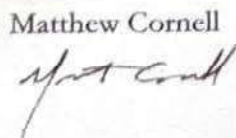 Matthew Cornell
Matt Cornell